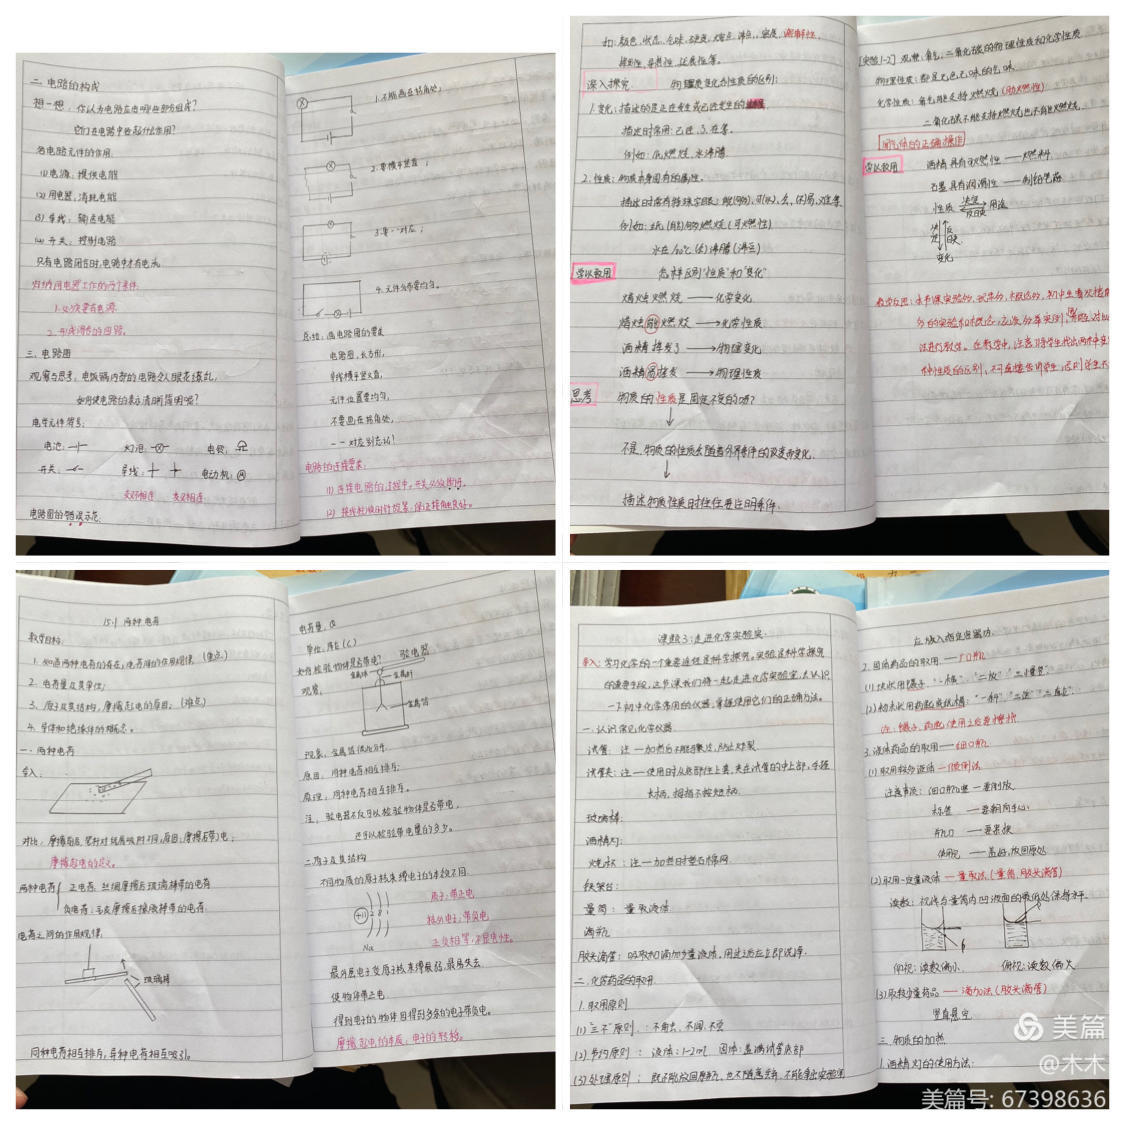 二. 电路的构成
想一想: 你认为电路应由哪些部分组成?
它们在电路中各起什么作用?
各电路元件的作用:
(1) 电源: 提供电能
(2) 用电器: 消耗电能
(3) 导线: 输送电能
(4) 开关: 控制电路
只有电路闭合时,电路中才有电流
归纳用电器工作的两个条件:
1. 必须要有电源
2. 形成闭合的回路.
三. 电路图
观察与思考: 电饭锅内部的电路令人眼花缭乱,
如何使电路的表示清晰简明呢?
电学元件符号:
电池: 灯泡: 电铃:
开关: 导线: 电动机:
交叉相连
电路图的错误示范:
1. 不能画在拐角处;
2. 要横平竖直;
3. 要一一对应;
4. 元件分布要均匀.
总结: 画电路图的要求
电路图, 长方形,
导线横平竖直,
元件位置要均匀,
不要画在拐角处,
一一对应别忘记!
电路的连接要求:
(1) 连接电路的过程中, 开关必须断开.
如: 颜色, 状态, 气味, 硬度, 熔点, 沸点, 密度, 溶解性,
挥发性, 导热性, 延展性等.
深入探究 物质变化与性质的区别:
描述时常用: 已经, 了, 在等.
例如: 纸燃烧, 水沸腾.
2. 性质: 物质本身固有的属性.
例如: 纸(能)够燃烧 (可燃性)
水在100℃(会)沸腾 (沸点)
学以致用 怎样区别"性质"和"变化"
蜡烛燃烧 ——→化学变化
蜡烛能燃烧 ——→化学性质
酒精挥发了 ——→物理变化
酒精易挥发 ——→物理性质
思考 物质的性质是固定不变的吗?
不是, 物质的性质会随着外界条件的改变而变化.
描述物质性质时往往要注明条件.
[实验1-2] 观察: 氧气, 二氧化碳的物理性质和化学性质
物理性质: 都是无色无味的气味
化学性质: 氧气能支持燃烧 (助燃性)
二氧化碳不能支持燃烧也不能燃烧.
闻气体的正确操作
学以致用 酒精具有可燃性 —— 燃料
石墨具有润滑性 —— 制铅笔芯
性质 决定 反映 用途
变化
15.1 两种电荷
教学目标:
1. 知道两种电荷的存在, 电荷间的作用规律. (重点)
2. 电荷量及其单位;
3. 原子及其结构, 摩擦起电的原因; (难点)
4. 导体和绝缘体的概念.
一. 两种电荷
导入:
摩擦起电的定义.
两种电荷 正电荷: 丝绸摩擦后玻璃棒带的电荷
负电荷: 毛皮摩擦后橡胶棒带的电荷.
电荷之间的作用规律:
玻璃棒
同种电荷相互排斥, 异种电荷相互吸引.
电荷量: Q
单位: 库仑 (C)
如何检验物体是否带电? 验电器
观察: 金属球 金属杆
金属箔
现象: 金属箔张开.
原因: 同种电荷相互排斥;
原理: 同种电荷相互排斥.
注: 验电器不仅可以检验物体是否带电,
还可以检验带电量的多少.
二. 原子及其结构
不同物质的原子核束缚电子的本领不同.
+11 2 8 1
Na
质子: 带正电
核外电子: 带负电
正负相等, 不显电性.
最外层电子受原子核束缚最弱, 最易失去
使物体带正电
得到电子的物体因得到多余的电子带负电.
摩擦起电的本质: 电子的转移.
课题3: 走进化学实验室.
导入: 学习化学的一个重要途径是科学探究, 实验是科学探究
的重要手段, 这节课我们将一起走进化学实验室, 去认识
一下初中化学常用的仪器, 掌握使用它们的正确方法.
一. 认识常见化学仪器.
试管: 注—加热后不能骤冷, 防止炸裂.
试管夹: 注—使用时从底部往上套, 夹在试管的中上部, 手握
长柄, 拇指不按短柄.
玻璃棒:
酒精灯:
烧杯: 注—加热时垫石棉网.
铁架台:
量筒: 量取液体.
滴瓶:
胶头滴管: 吸取和滴加少量液体, 用过后应立即洗净.
二. 化学药品的取用.
1. 取用原则
(1) "三不"原则: 不触, 不闻, 不尝
(2) 节约原则: 液体: 1-2ml 固体: 盖满试管底部
(3) 处理原则: 既不能放回原瓶, 也不随意丢弃, 不能拿出实验室
应放入指定容器内.
2. 固体药品的取用 —— 广口瓶
(1) 块状用镊子: "一横" "二放" "三慢竖"
注: 镊子, 药匙使用之后要擦拭
3. 液体药品的取用 —— 细口瓶
(1) 取用较多液体 —— 倾倒法
注意事项: 细口瓶塞 — 要倒放
标签 — 要朝向手心.
瓶口 — 要紧挨
倒完 — 盖好, 放回原处
(2) 取用一定量液体 —— 量取法 (量筒, 胶头滴管)
读数: 视线与量筒内凹液面的最低处保持水平.
俯视: 读数偏小. 俯视: 读数偏大
(3) 取较少量药品 —— 滴加法 (胶头滴管)
竖直悬空
三. 物质的加热
1. 酒精灯的使用方法:
美篇
@木木
美篇号: 67398636